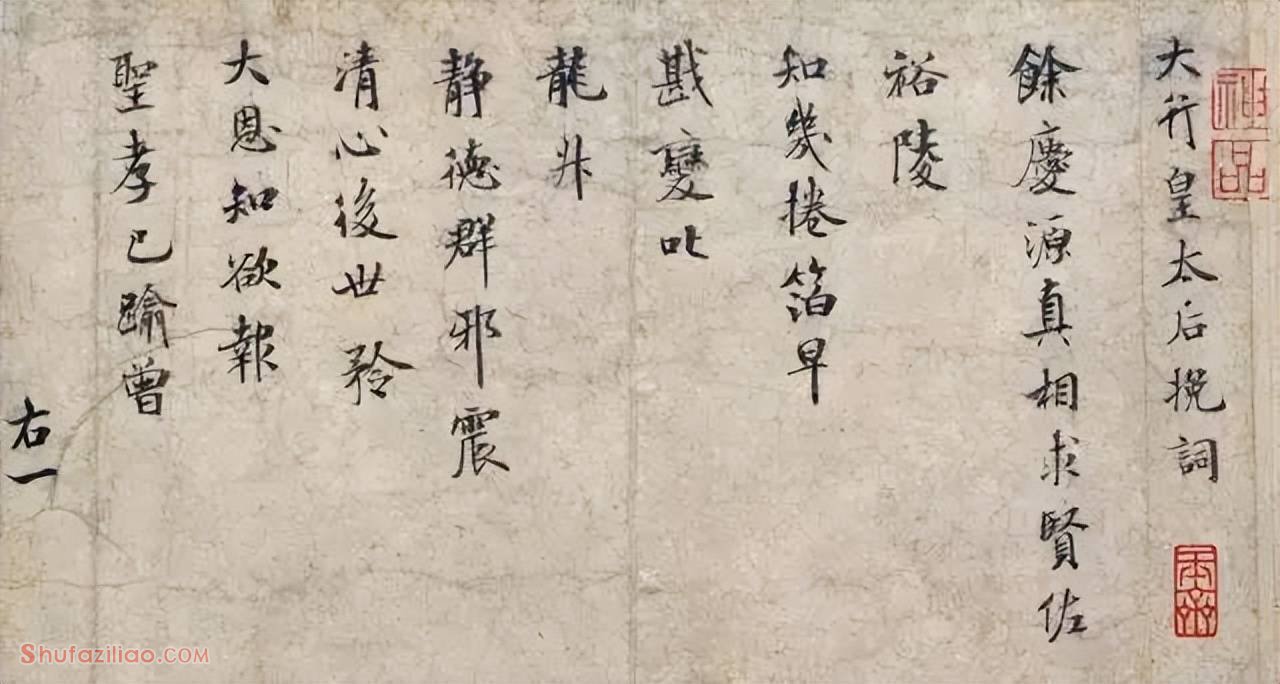 大行皇太后挽詞
餘慶源真相求賢佐
裕陵
知幾捲箔早
戡變叱
龍升
静德群邪震
清心後世矜
大恩知欲報
聖孝已踰曾
右一
神品
Shufaziliao.COM